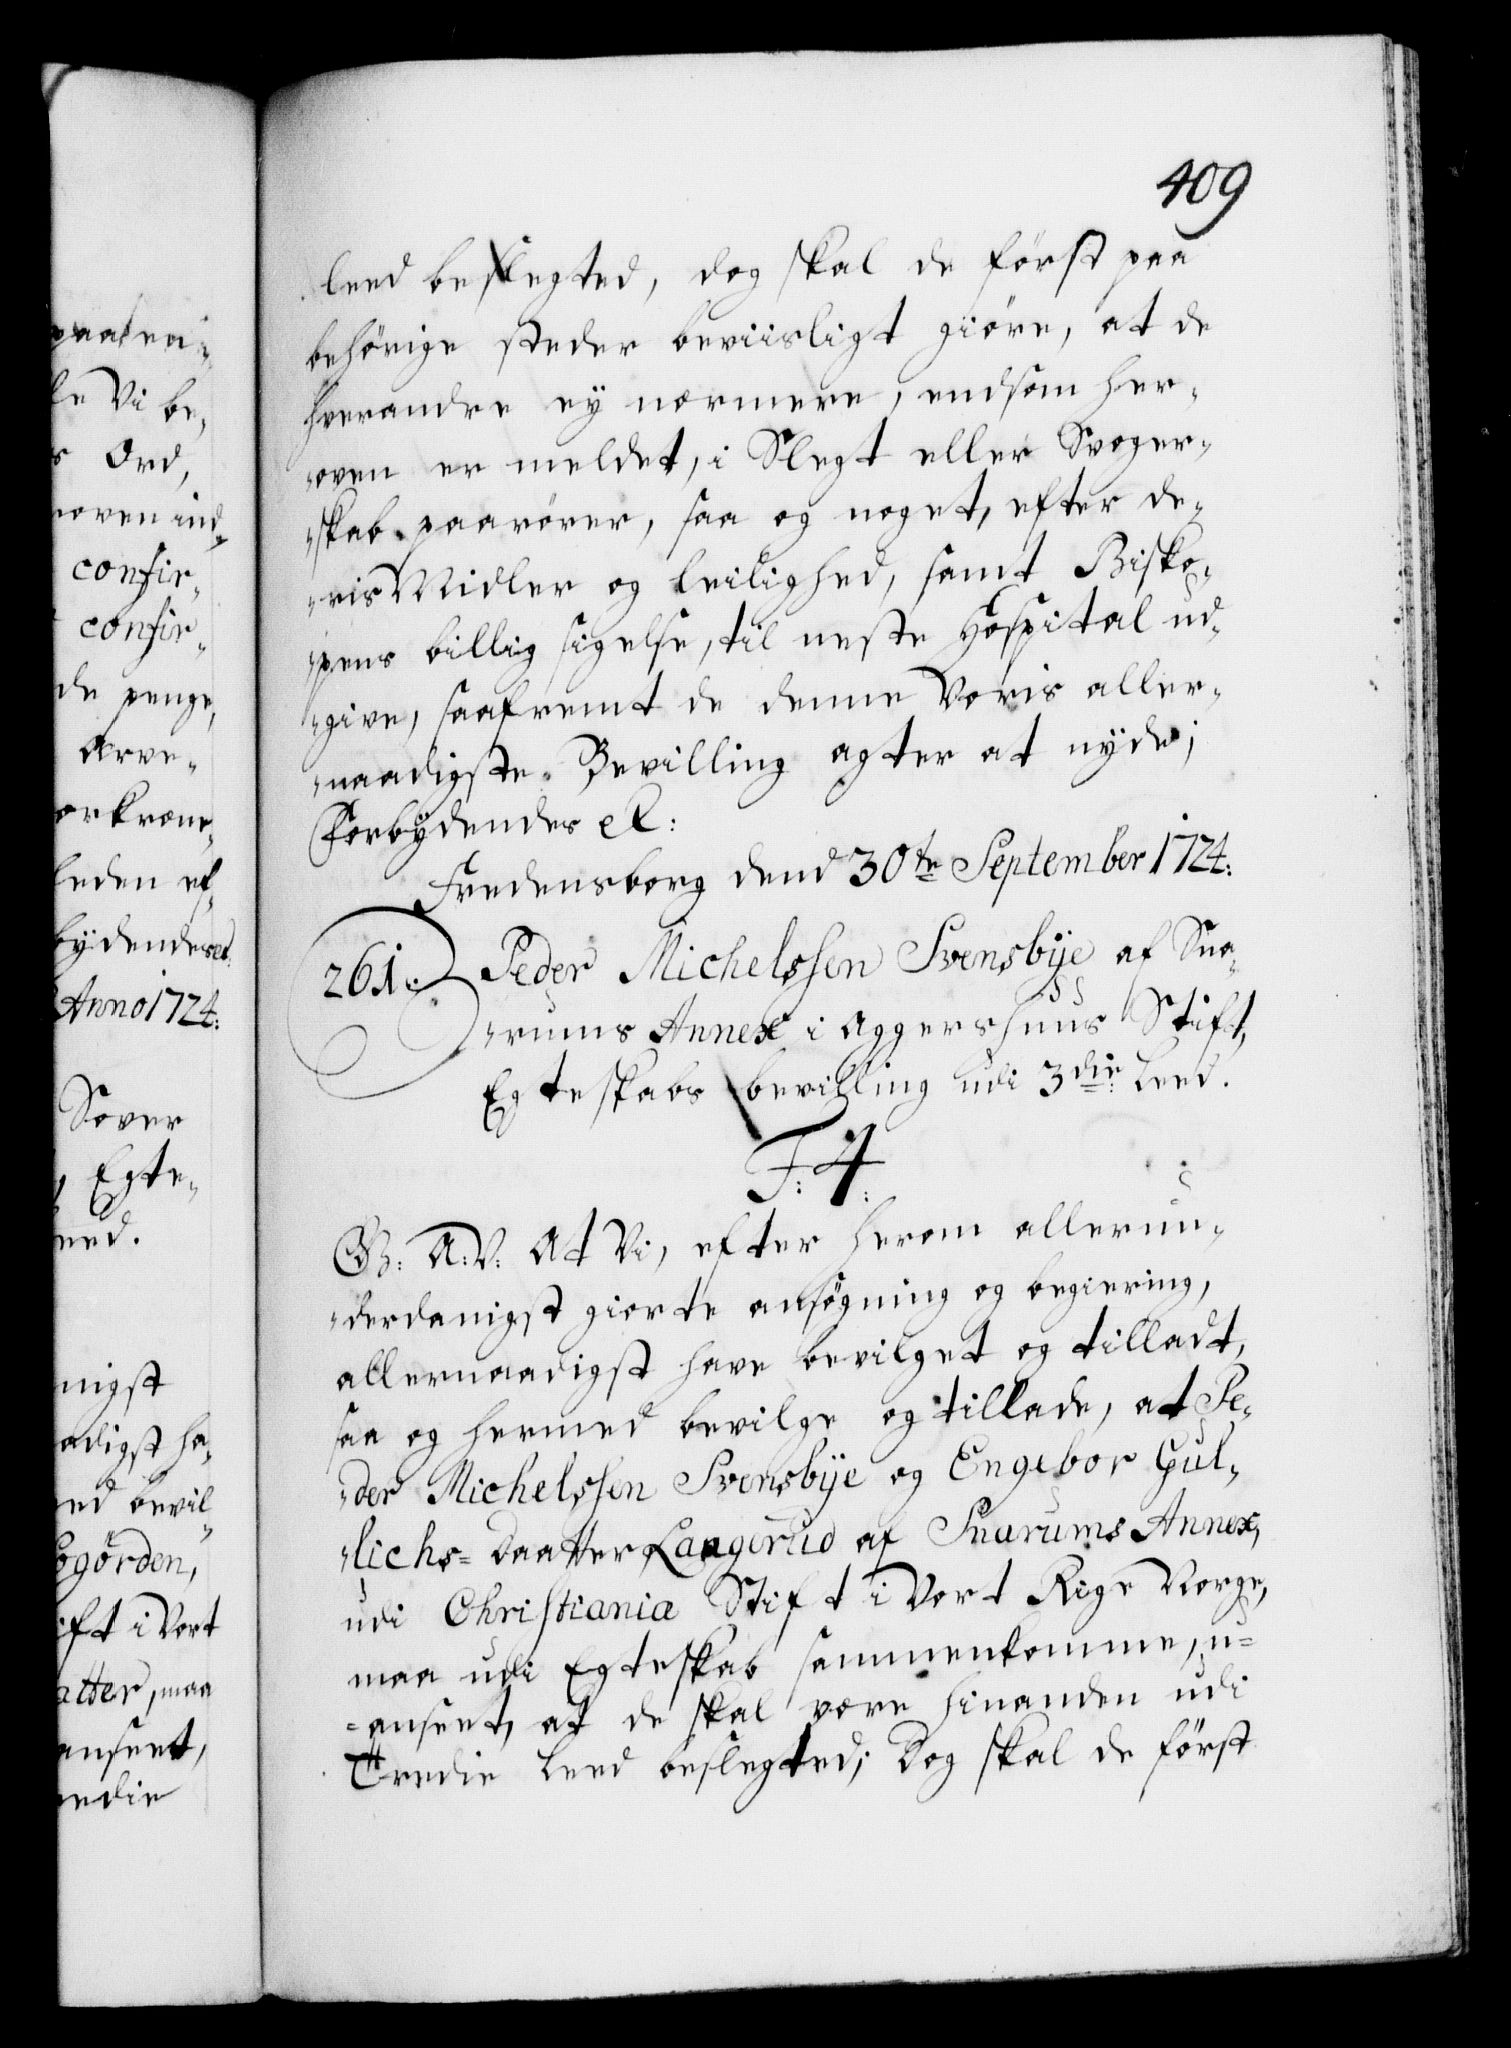 409
leed beslegted, dog skal de först paa
behörige steder beviisligt giöre, at de
hverandre ey nærmere, endsom her„
„oven er meldet, i Slegt eller Svoger„
„skab paarörer, saa og noget, efter de„
„ris Midler og leilighed, samt Bisko„
„pens billig sigelse, til neste Hospital ud„
„give, saafremt de denne Voris aller„
„naadigste Bevilling agter at nyde;
Forbydendes et:
Fredensborg dend 30te September 1724:
261. Peder Michelssen Svensbÿe af Sna„
„rums Annex i Aggershuus Stift,
Egteskabs bevilling udi 3die Leed.
F: 4:
G: A: V: At Vi, efter herom allerun„
„derdanigst giorte ansögning og begiering,
allernaadigst have bevilget og tilladt,
saa og hermed bevilge og tillade, at Pe„
„der Michelssen Svensbÿe og Engebor Gul„
„lichs= Daatter Laagerud af Snarums Annex,
udi Christiania Stift i Vort Rige Norge,
maa udi Egteskab sammenkomme, u=
=anseet, at de skal være hinanden udi
Tredie Leed beslegted; Dog skal de först
le Vi be„
Ord,
confir„
confir„
de penge,
Arve„
leden ef„
bÿdendes et:
Anno 1724:
Söver
Egte„
eed.
nigst
adigst ha„
ed bevil„
ögörden,
ift i Vort
atter, maa
anseet,
redie